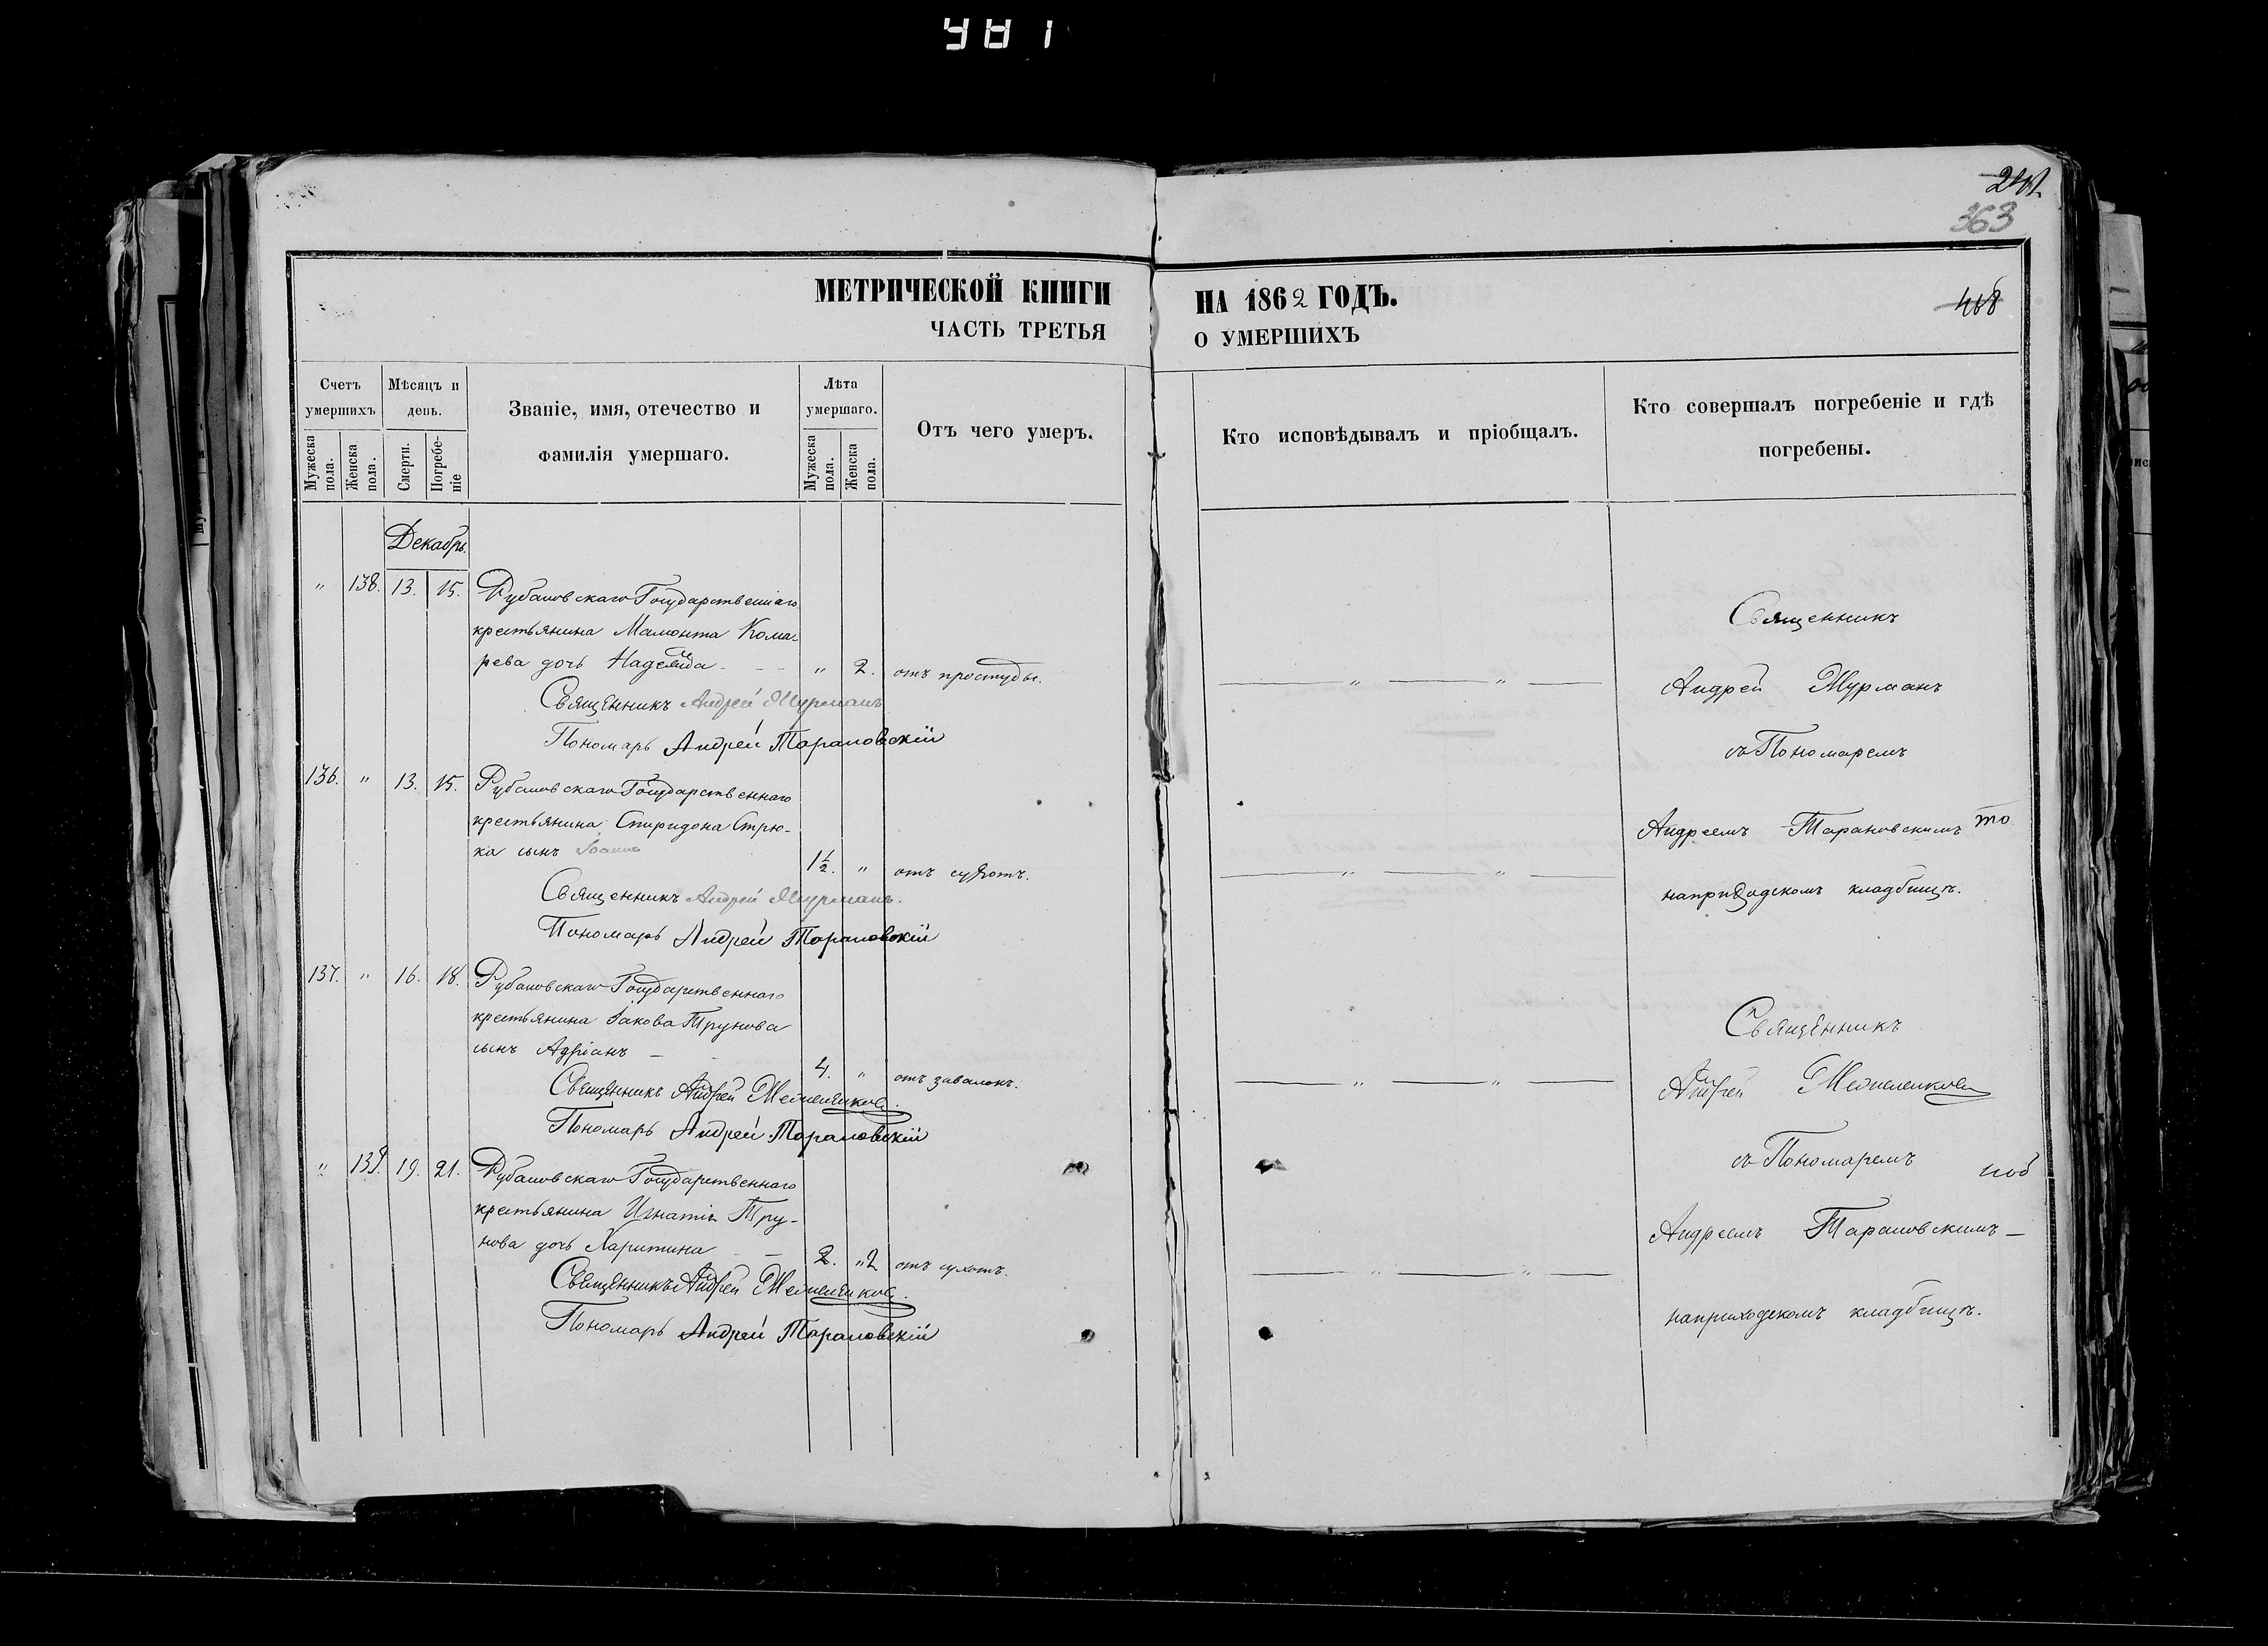 241.
363
МЕТРИЧЕСКОЙ КНИГИ НА 1862 ГОДЪ.
468
ЧАСТЬ ТРЕТЬЯ О УМЕРШИХЪ
Счетъ умершихъ
Мѣсяцъ и день.
Званіе, имя, отечество и фамилія умершаго.
Лѣта умершаго.
Отъ чего умеръ.
Кто исповѣдывалъ и пріобщалъ.
Кто совершалъ погребеніе и гдѣ погребены.
Мужеска пола.
Женска пола.
Смерти.
Погребеніе
Мужеска пола.
Женска пола.
Декабрь.
" 138. 13. 15. Рубановскаго Государственнаго
крестьянина Мамонта Кома-
рева дочь Надежда - - " 2. отъ простуды.
Священникъ Андрей Журманъ
Пономарь Андрей Тарановскій
136. " 13. 15. Рубановскаго Государственнаго
крестьянина Спиридона Стрю-
ка сынъ Іоаннъ 1½. " отъ сухотъ.
Священникъ Андрей Журманъ.
Пономарь Андрей Тарановскій
137. " 16. 18. Рубановскаго Государственнаго
крестьянина Іакова Трунова
сынъ Адріанъ - 4. " отъ завалокъ.
Священникъ Андрей
Пономарь Андрей Тарановскій
" 139. 19. 21. Рубановскаго Государственнаго
крестьянина Игнатія Тру-
нова дочь Харитина - 2. " 2 отъ сухотъ.
Священникъ Андрей
Пономарь Андрей Тарановскій
Священникъ
Андрей Журманъ
съ Пономаремъ
Андреемъ Тарановскимъ то
наприходскомъ кладбищѣ.
Священникъ
Андрей
съ Пономаремъ
Андреемъ Тарановскимъ —
наприходскомъ кладбищѣ.